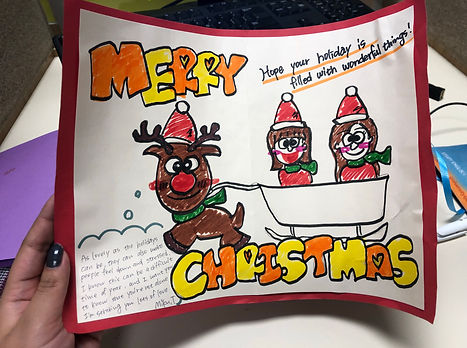 MERRY
Hope your holiday is
filled with wonderful things!
As lovely as the holidays
can be, they can also make
people feel down and stressed.
I know this can be a difficult
time of year, and I want you
to know that you're not alone
I'm sending you lots of love
CHRISTMAS